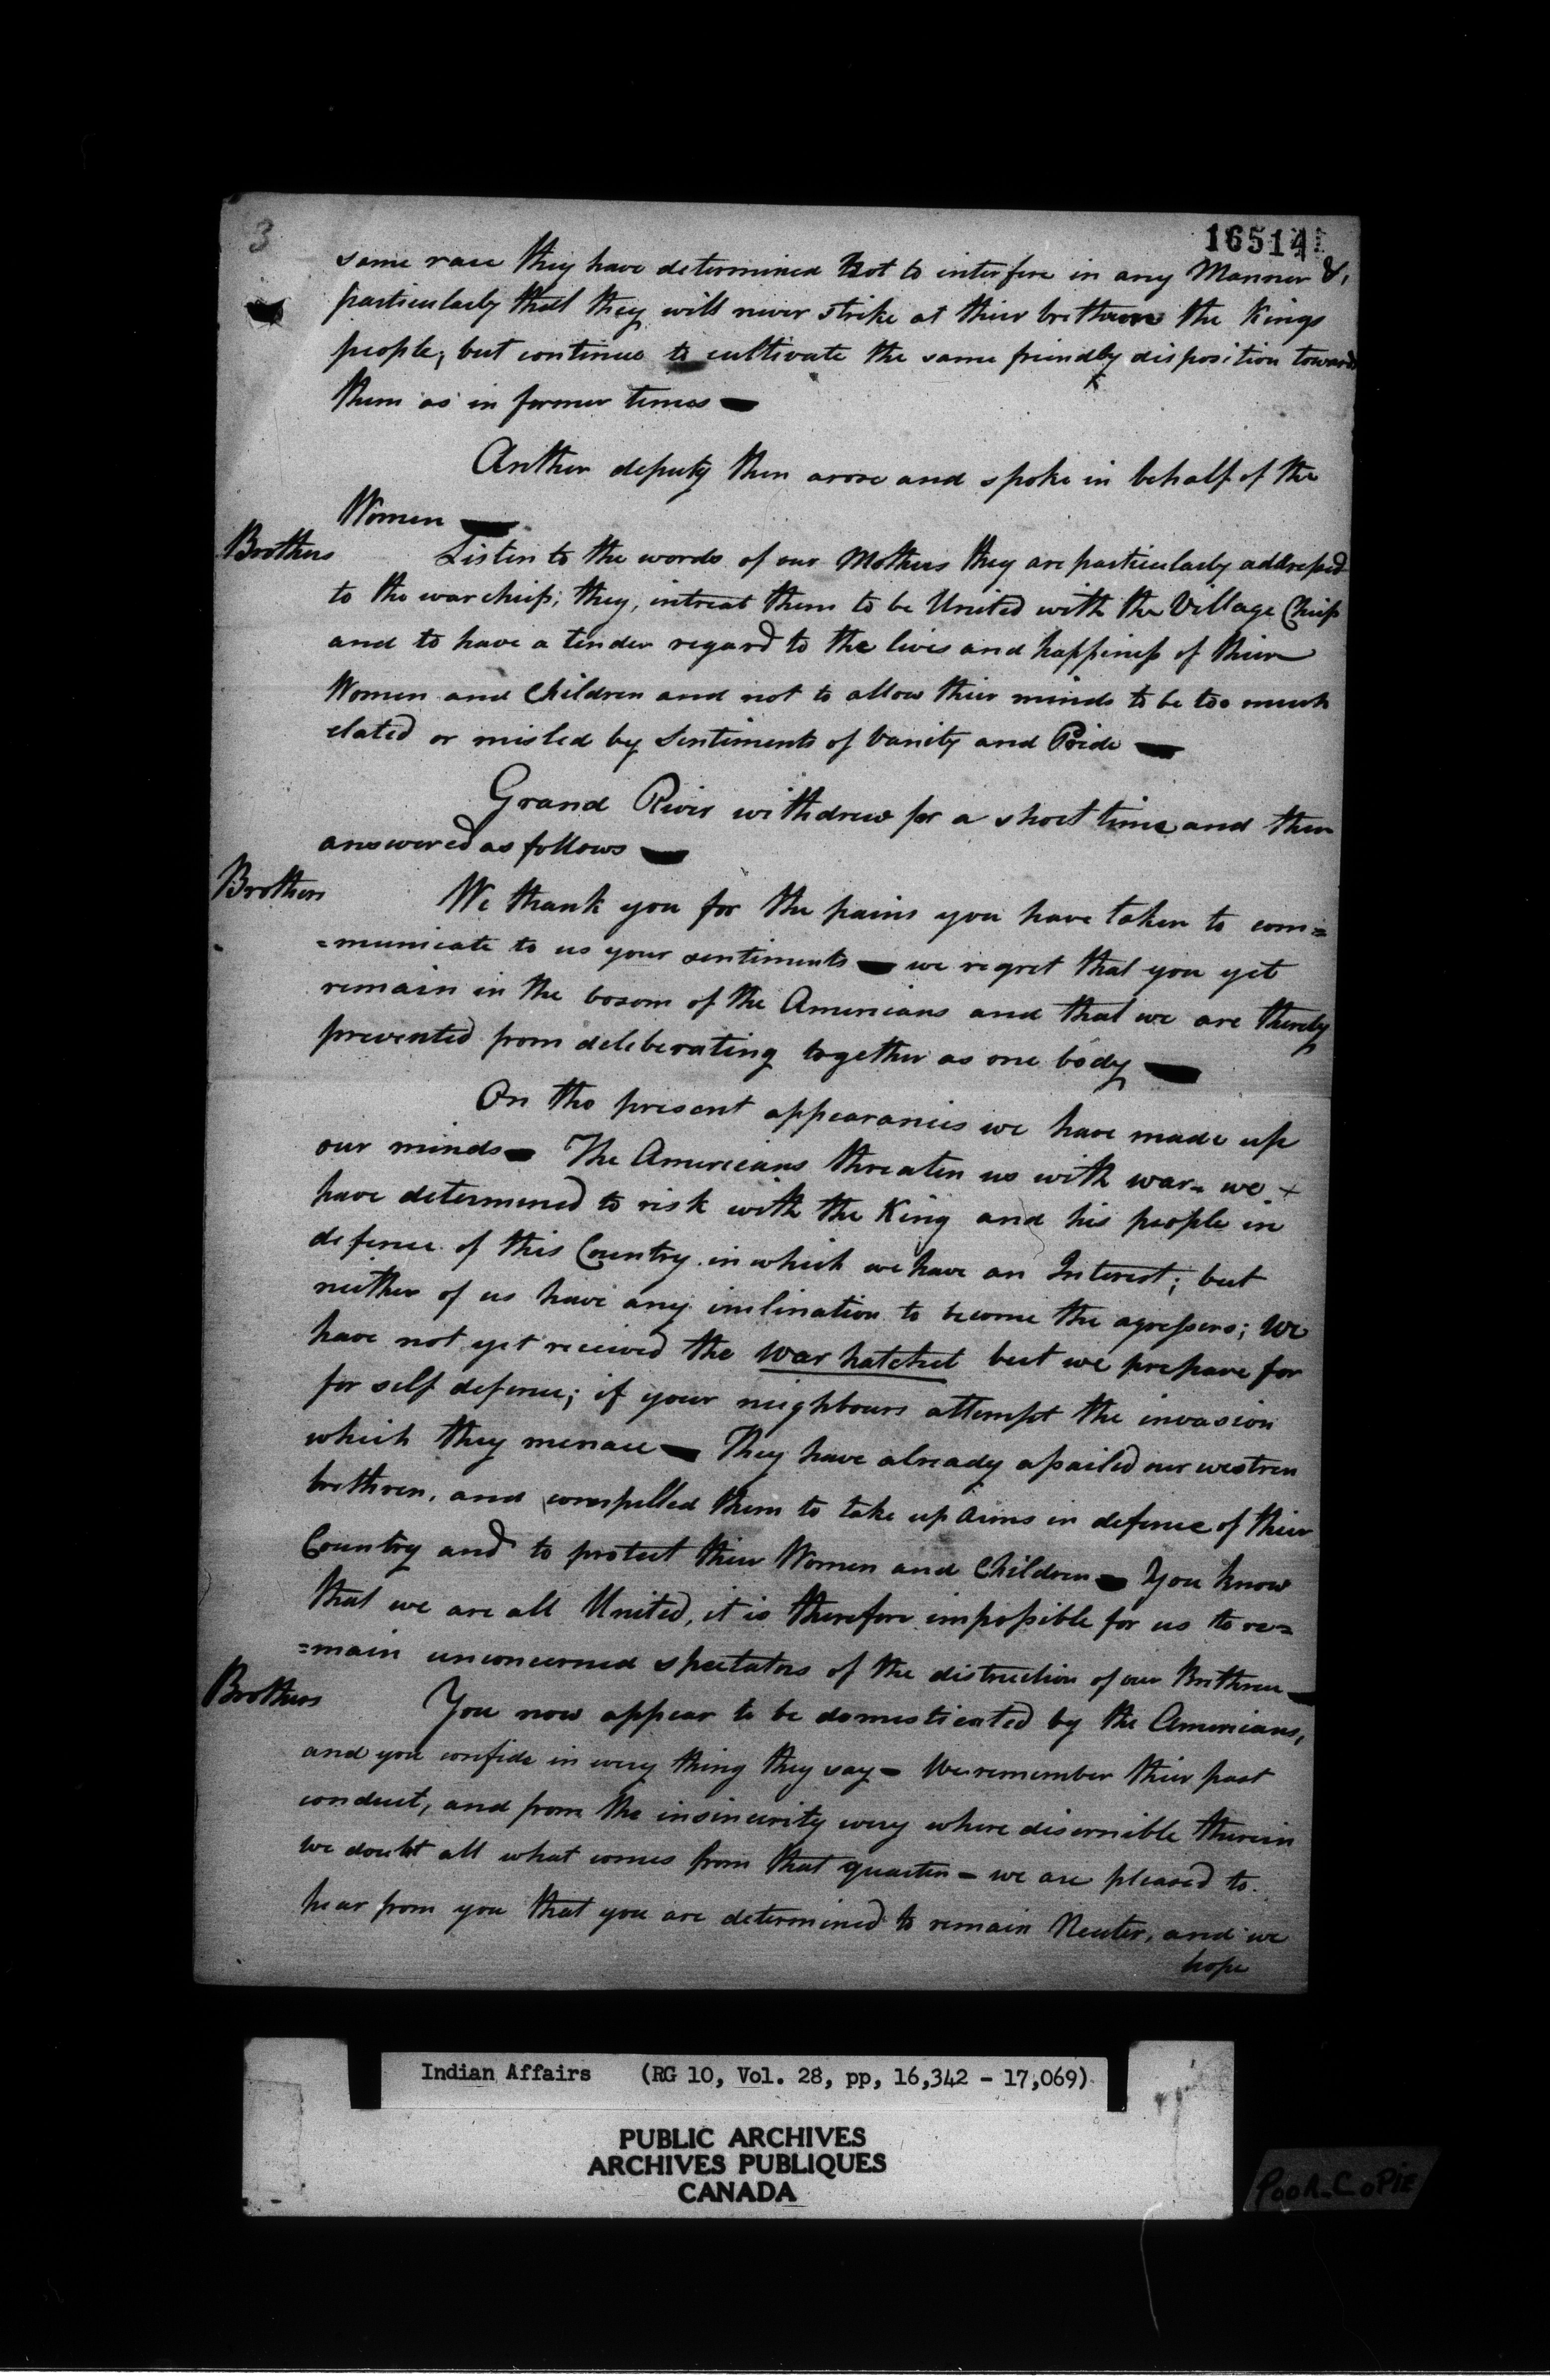 3
16514
same race they have determined not to interfere in any Manner &,
particularly that they will never strike at their brethren the Kings
people; but continue to cultivate the same friendly disposition towards
them as in former times —
Anther deputy then arose and spoke in behalf of the
Women —
Brothers Listen to the words of our Mothers they are particularly addressed
to the war chiefs; they, intreat them to be United with the Village Chiefs
and to have a tender regard to the lives and happiness of their
Women and Children and not to allow their minds to be too much
elated or misled by Sentiments of Vanity and Pride —
Grand River withdrew for a short time and then
answered as follows —
Brothers We thank you for the pains you have taken to com=
=municate to us your sentiments — we regret that you yet
remain in the bosom of the Americans and that we are thereby
prevented from deleberating together as one body —
On the present appearances we have made up
our minds — The Americans threaten us with war - we +
have determined to risk with the King and his people in
defence of this Country in which we have an Interest; but
neither of us have any inclination to become the agressers; We
have not yet received the war hatchet but we prepare for
for self defence; if your neighbours attempt the invasion
which they menace — They have already assailed our westren
brethren, and compelled them to take up Arms in defence of their
Country and to protect their Women and Children — You know
that we are all United, it is therefore impossible for us to re=
=main unconcerned spectators of the distruction of our Brethren —
Brothers You now appear to be domesticated by the Americans,
and you confide in every thing they say - We remember their past
conduct, and from the insincerity every where discernible therein
we doubt all what comes from that quarter - we are pleased to
hear from you that you are determined to remain Neuter, and we
hope
Indian Affairs (RG 10, Vol. 28, pp, 16,342 - 17,069)
PUBLIC ARCHIVES
ARCHIVES PUBLIQUES
CANADA
POOR-COPIE